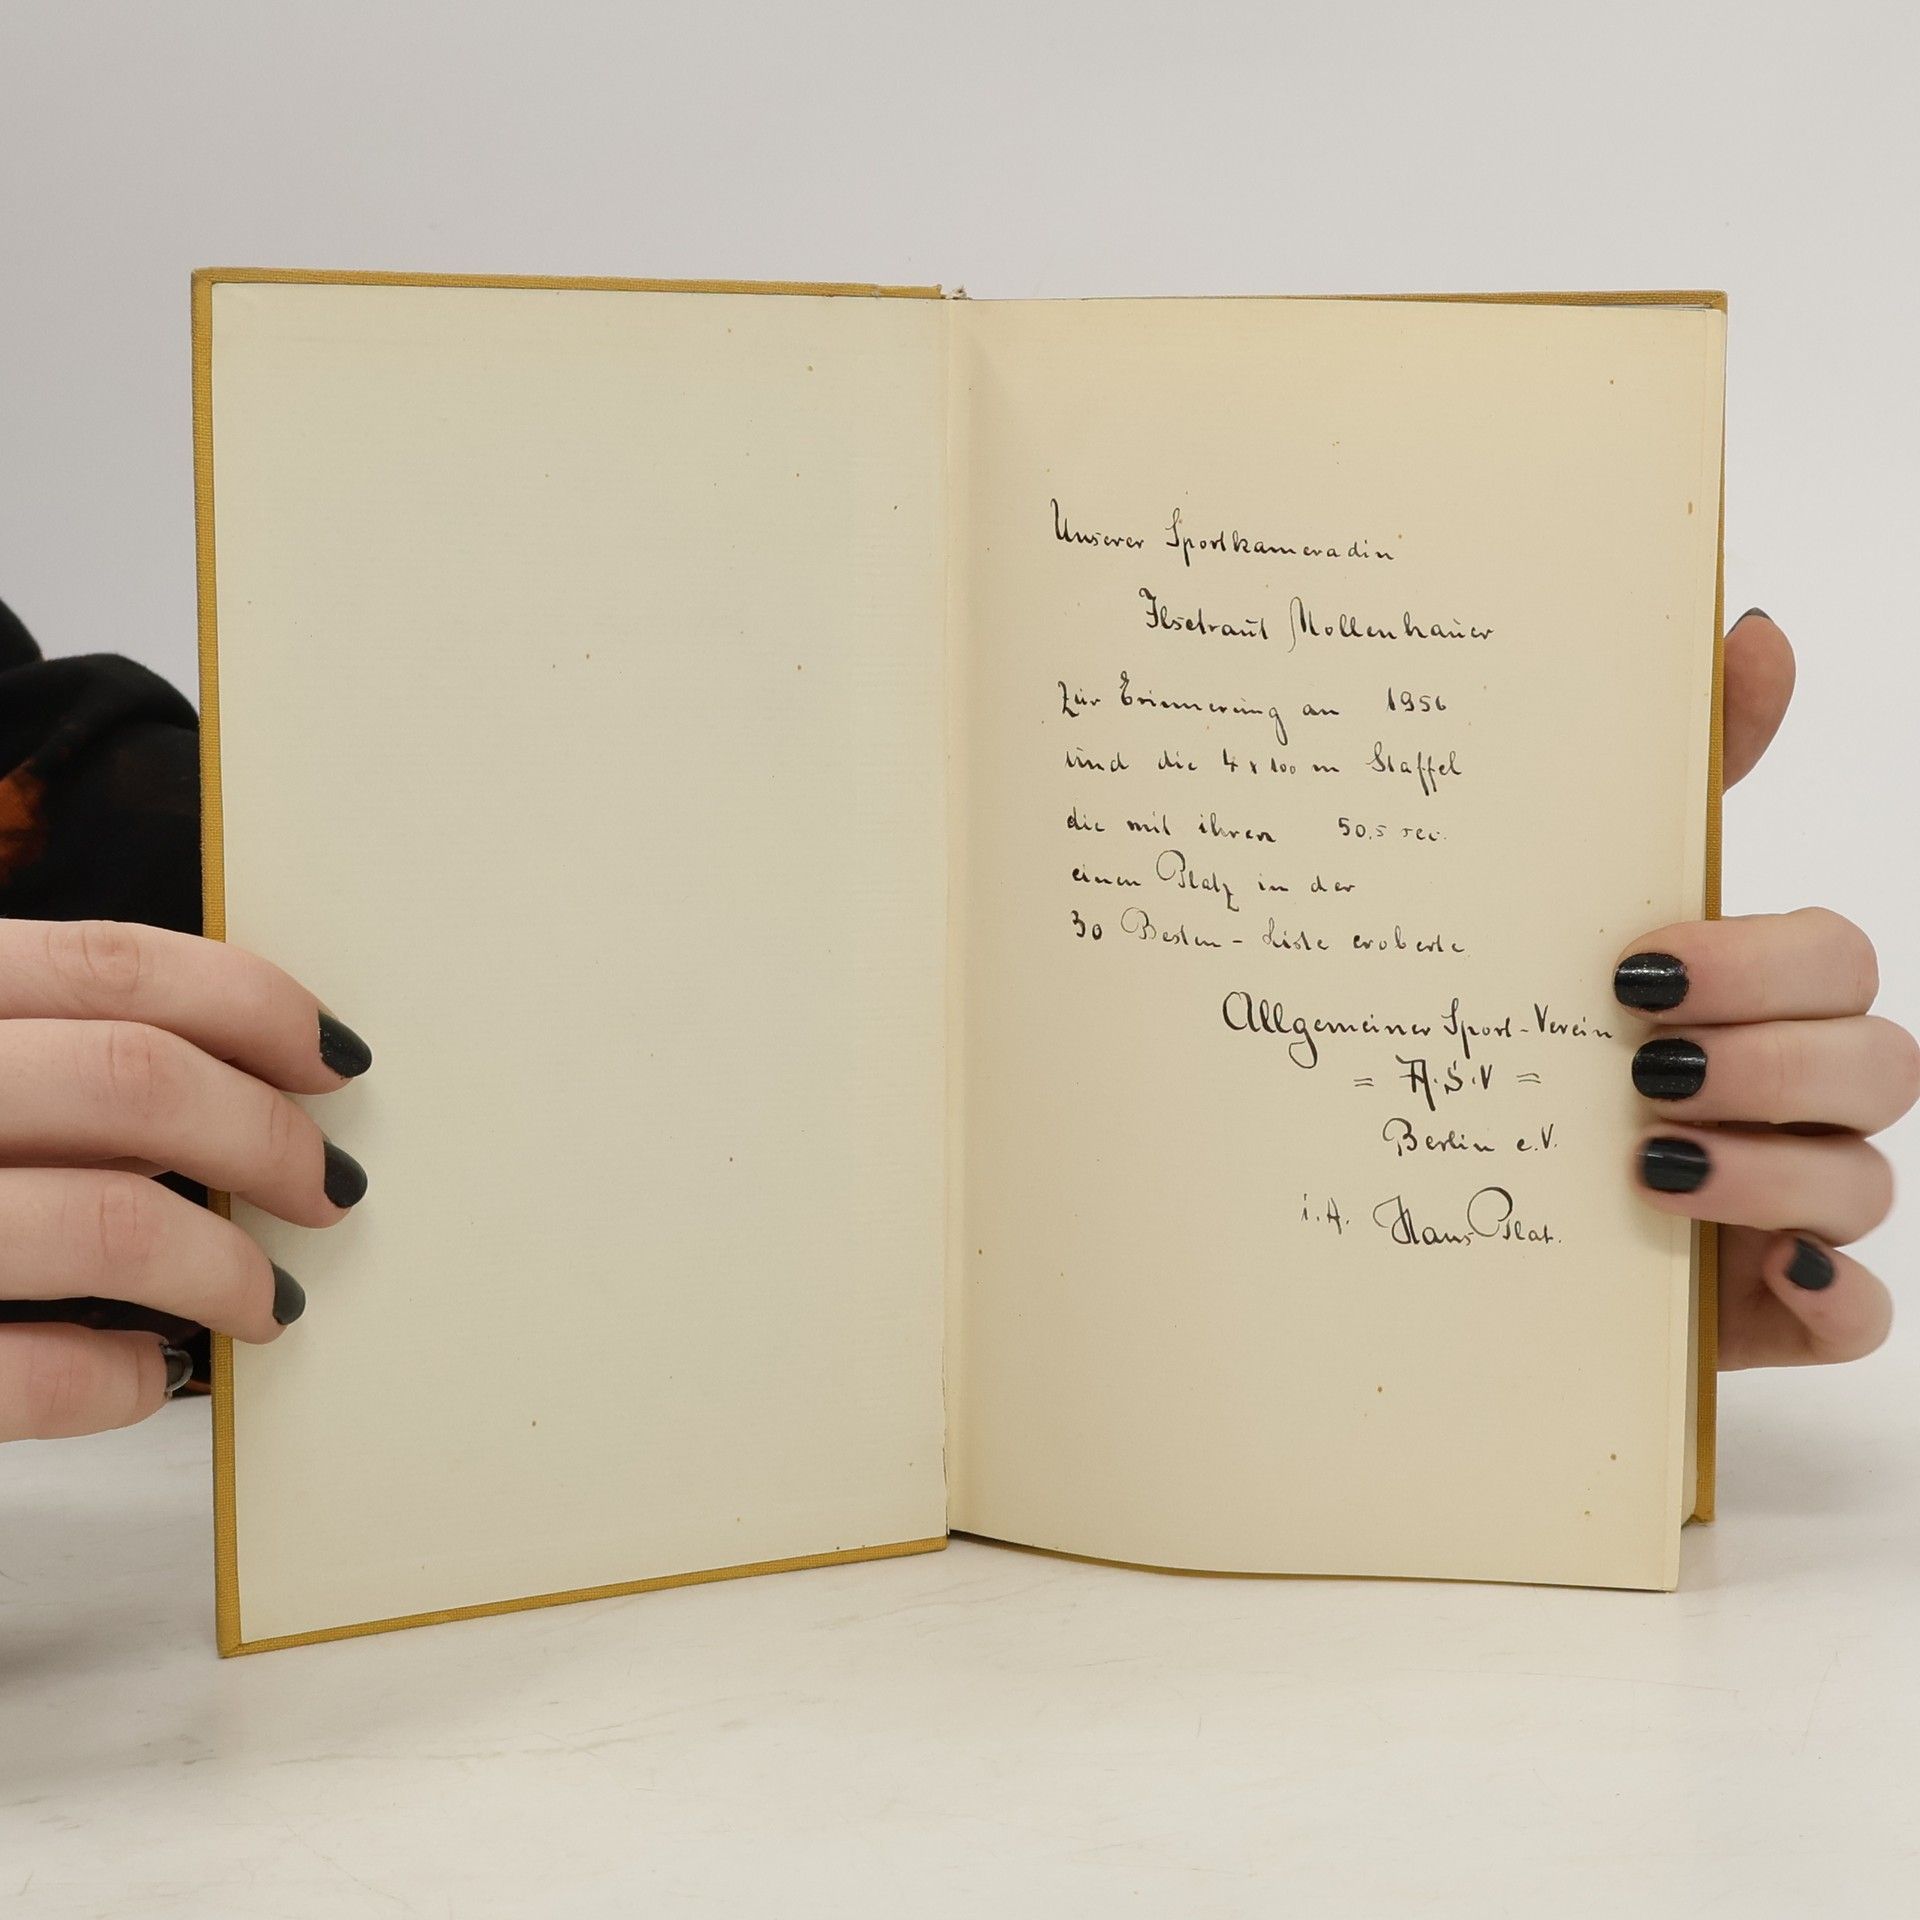 Unserer Sportkameradin
Ilsetraut Mollenhauer
Zur Erinnerung an 1956
und die 4 x 100 m Staffel
die mit ihren 50,5 sec.
einen Platz in der
30 Besten - Liste eroberte
Allgemeiner Sport-Verein
= A.S.V =
Berlin e.V.
i.A. Hans